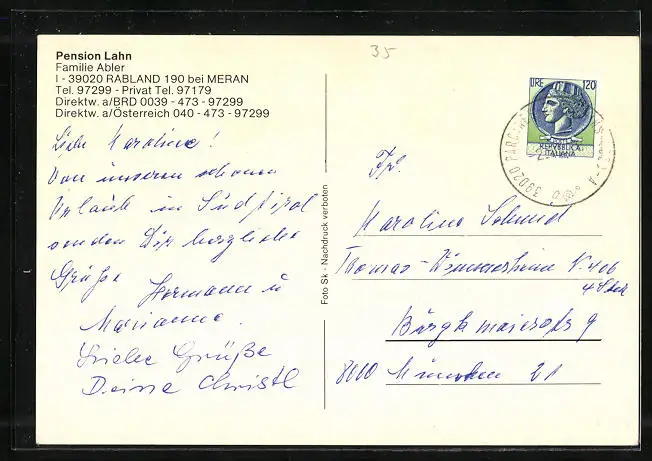 35
Pension Lahn
Familie Abler
I - 39020 RABLAND 190 bei MERAN
Tel. 97299 - Privat Tel. 97179
Direktw. a/BRD 0039 - 473 - 97299
Direktw. a/Österreich 040 - 473 - 97299
Liebe Karoline!
Von unserem schönen
Urlaub in Südtirol
senden Dir herzliche
Grüße Hermann u
Marianne.
Viele Grüße
Deine Christl
Foto Sk - Nachdruck verboten
LIRE 120
REPVBBLICA
ITALIANA
39020 PARC
Frl.
Karoline Schmid
Thomas- N. 406
4 Stock
9
8000 München 21